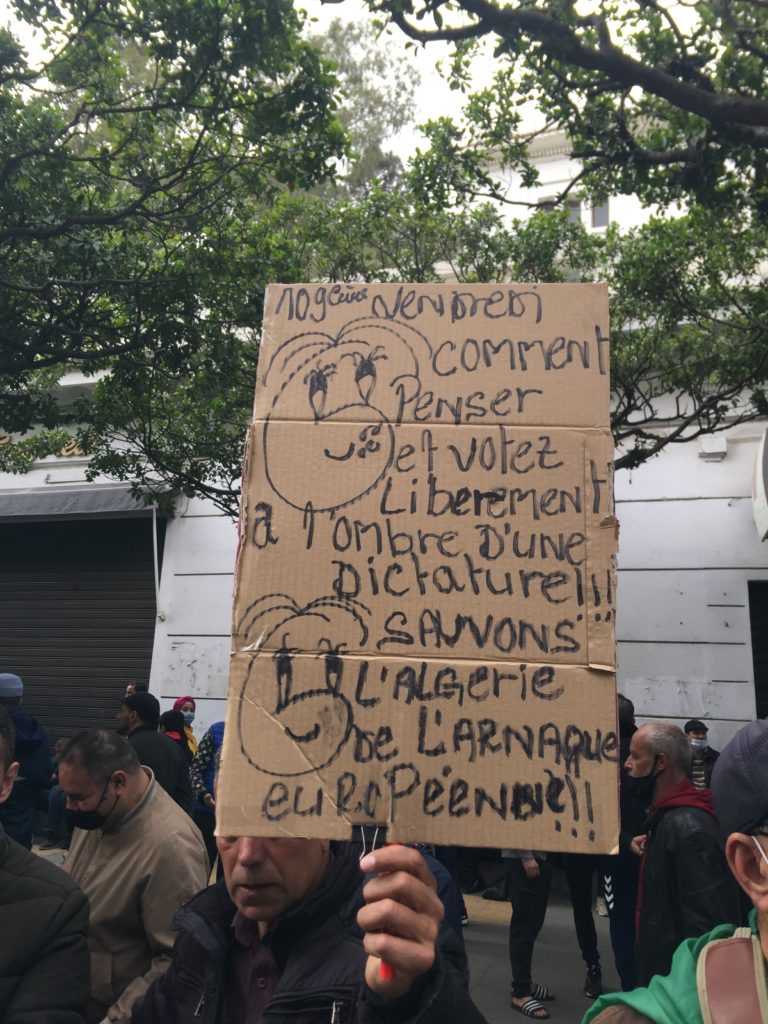 109ème Vendredi
comment
Penser
et votez
Liberement
a l'ombre D'une
Dictature!!!
SAUVONS
L'ALGerie
De L'ARNAque
euroPéenne!!!